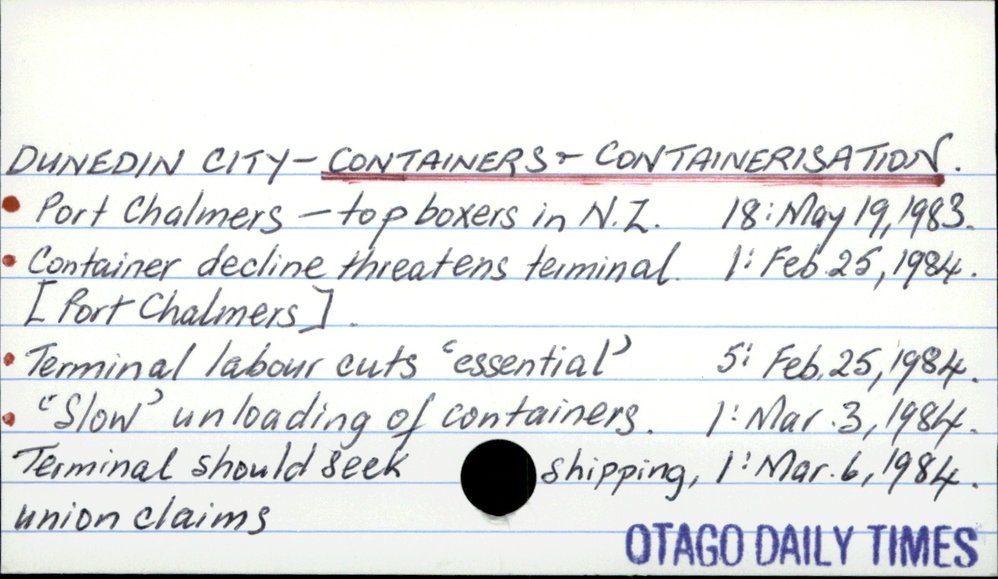 DUNEDIN CITY - CONTAINERS & CONTAINERISATION.
• Port Chalmers - top boxers in N.Z. 18: May 19, 1983.
• Container decline threatens terminal. 1: Feb. 25, 1984.
[Port Chalmers].
• Terminal labour cuts 'essential' 5: Feb. 25, 1984.
• "Slow" unloading of containers. 1: Mar. 3, 1984.
Terminal should seek shipping, 1: Mar. 6, 1984.
union claims
OTAGO DAILY TIMES